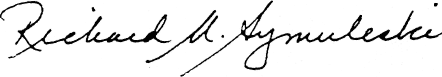 Richard M. Szymuleski